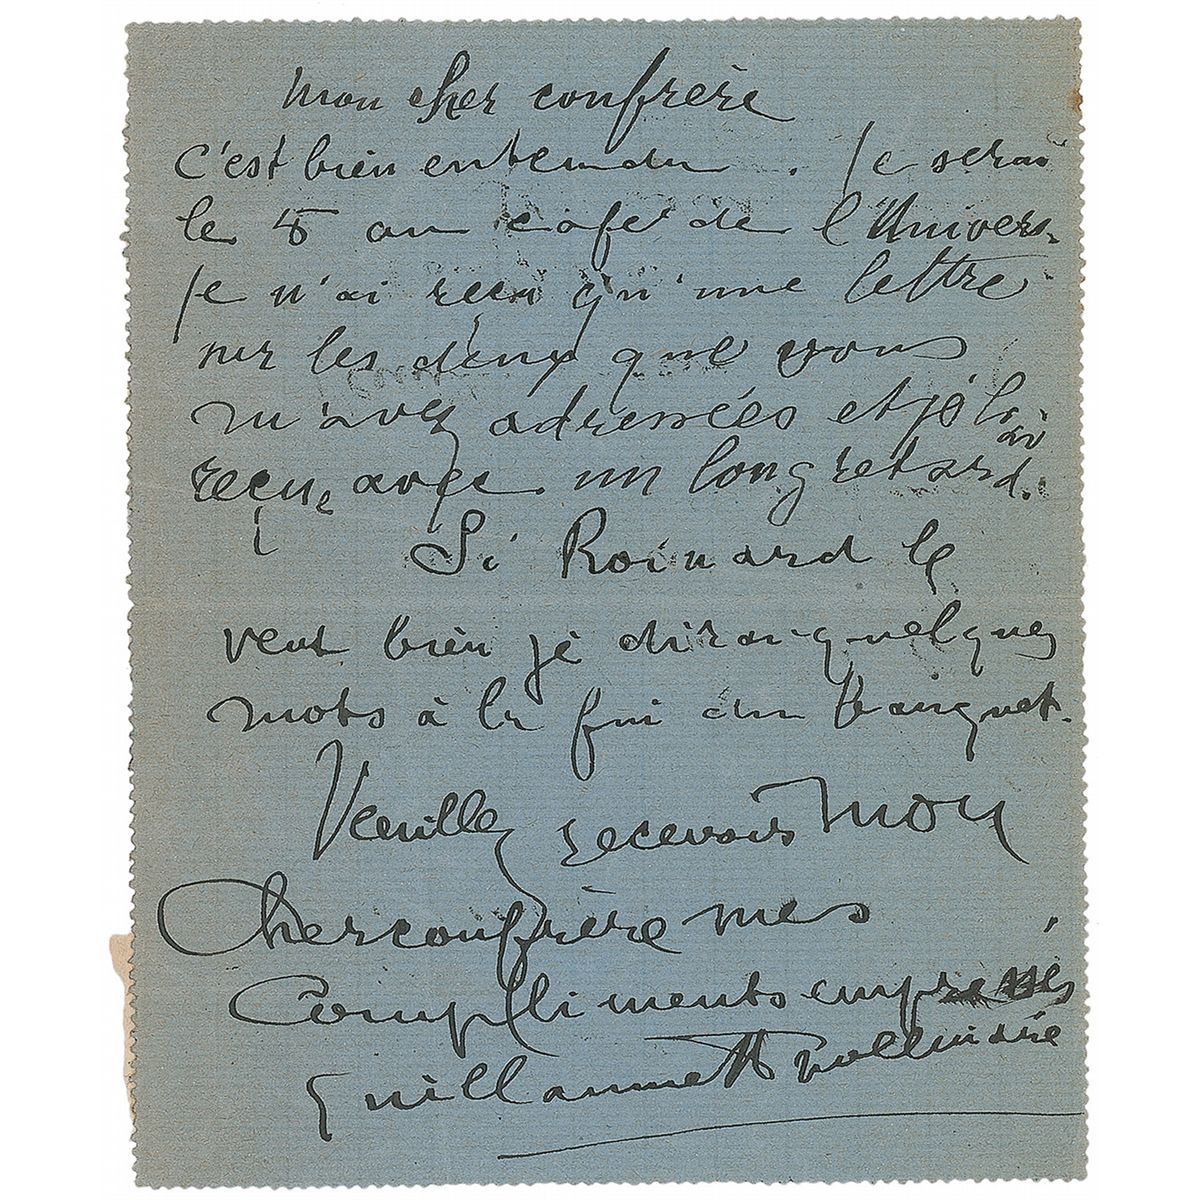 Mon cher confrère
c'est bien entendu. Je serai
le 5 au café de l'Univers.
Je n'ai reçu qu'une lettre
sur les deux que vous
m'avez adressées et je l'ai
reçue avec un long retard.
Si Roinard le
veut bien je dirai quelques
mots à la fin du banquet.
Veuillez recevoir mon
Cher confrère mes
Compliments empressés
Guillaume Apollinaire